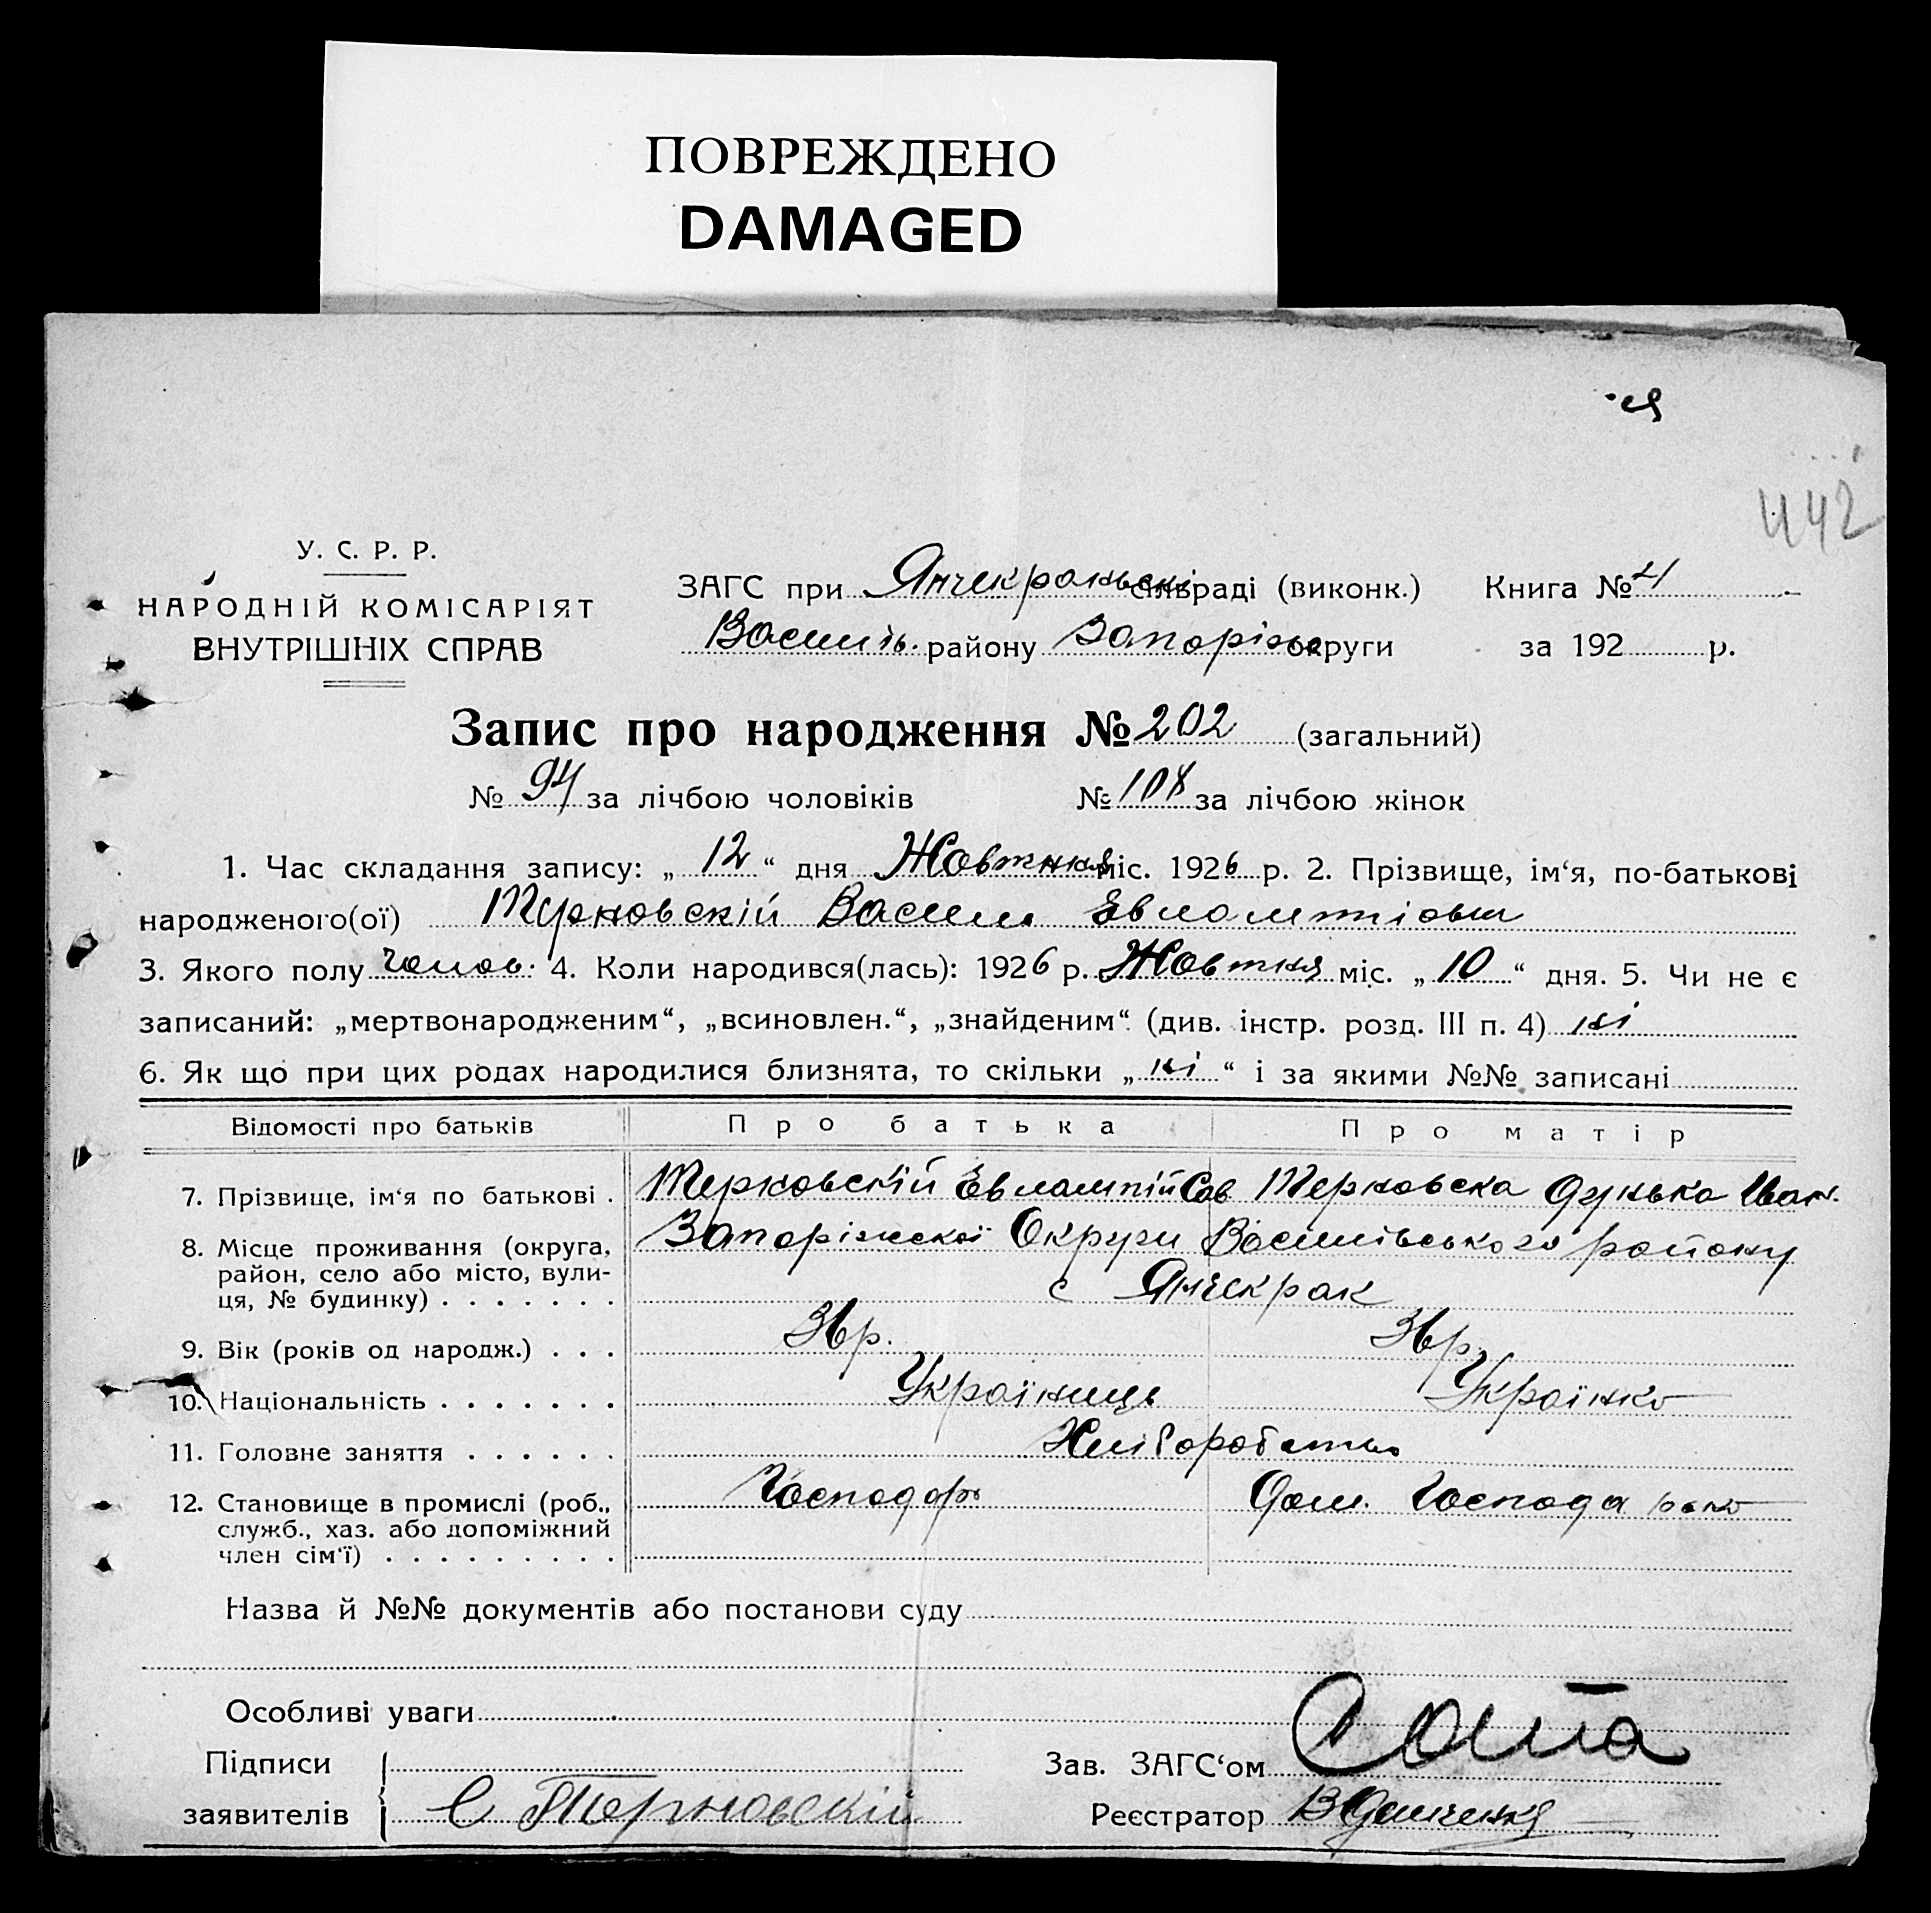 ПОВРЕЖДЕНО
DAMAGED
442
У. С. Р. Р.
НАРОДНІЙ КОМІСАРІЯТ
ВНУТРІШНІХ СПРАВ
ЗАГС при Янчекракьскі сільраді (виконк.) Книга №
Василів. району Запорізьк округи за 192 р.
Запис про народження № 202 (загальний)
№ 94 за лічбою чоловіків № 108 за лічбою жінок
1. Час складання запису: „ 12 “ дня Жовтня міс. 1926 р. 2. Прізвище, ім‘я, по-батькові
народженого(ої) Терновскій Василь Евлампіович
3. Якого полу чолов. 4. Коли народився(лась): 1926 р. Жовтня міс. „ 10 “ дня. 5. Чи не є
записаний: „мертвонародженим“, „всиновлен.“, „знайденим“ (див. інстр. розд. III п. 4) ні
6. Як що при цих родах народилися близнята, то скільки „ ні “ і за якими №№ записані
Відомості про батьків Про батька Про матір
7. Прізвище, ім‘я по батькові . Терновскій Евлампій Сав Терновска Дунька Иван.
8. Місце проживання (округа, Запоріжскої Округи Василівського району
район, село або місто, вули-
ця, № будинку) . . . . . . . с Янчекрак
9. Вік (років од народж.) . . . 36 р. 36 р.
10. Національність . . . . . . . Україниць Українка
11. Головне заняття . . . . . . Хліборобство
12. Становище в промислі (роб., Господарь Дом. Господа
служб., хаз. або допоміжний
член сім‘ї) . . . . . . . . . .
Назва й №№ документів або постанови суду
Особливі уваги
Підписи
заявителів Е Терновскій
Зав. ЗАГС‘ом
Реєстратор В